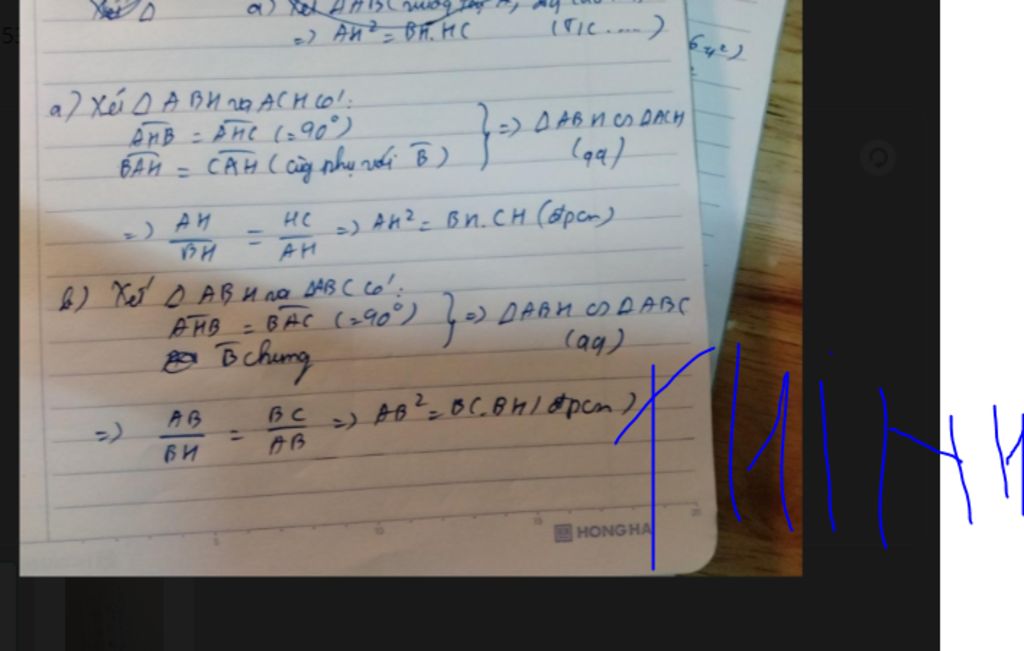 Xét Δ a) Xét
=> AH² = BH.HC (T/c ....)
a) Xét Δ ABH và ACH có:
AHB = AHC (=90°)
BAH = CAH (cùng phụ với B)
=> ΔABH ∽ ΔACH
(gg)
=> AH/BH = HC/AH => AH² = BH.CH (đpcm)
b) Xét Δ ABH và ΔABC có:
AHB = BAC (=90°)
B chung
=> ΔABH ∽ ΔABC
(gg)
=> AB/BH = BC/AB => AB² = BC.BH (đpcm)
HONG HA
THINH